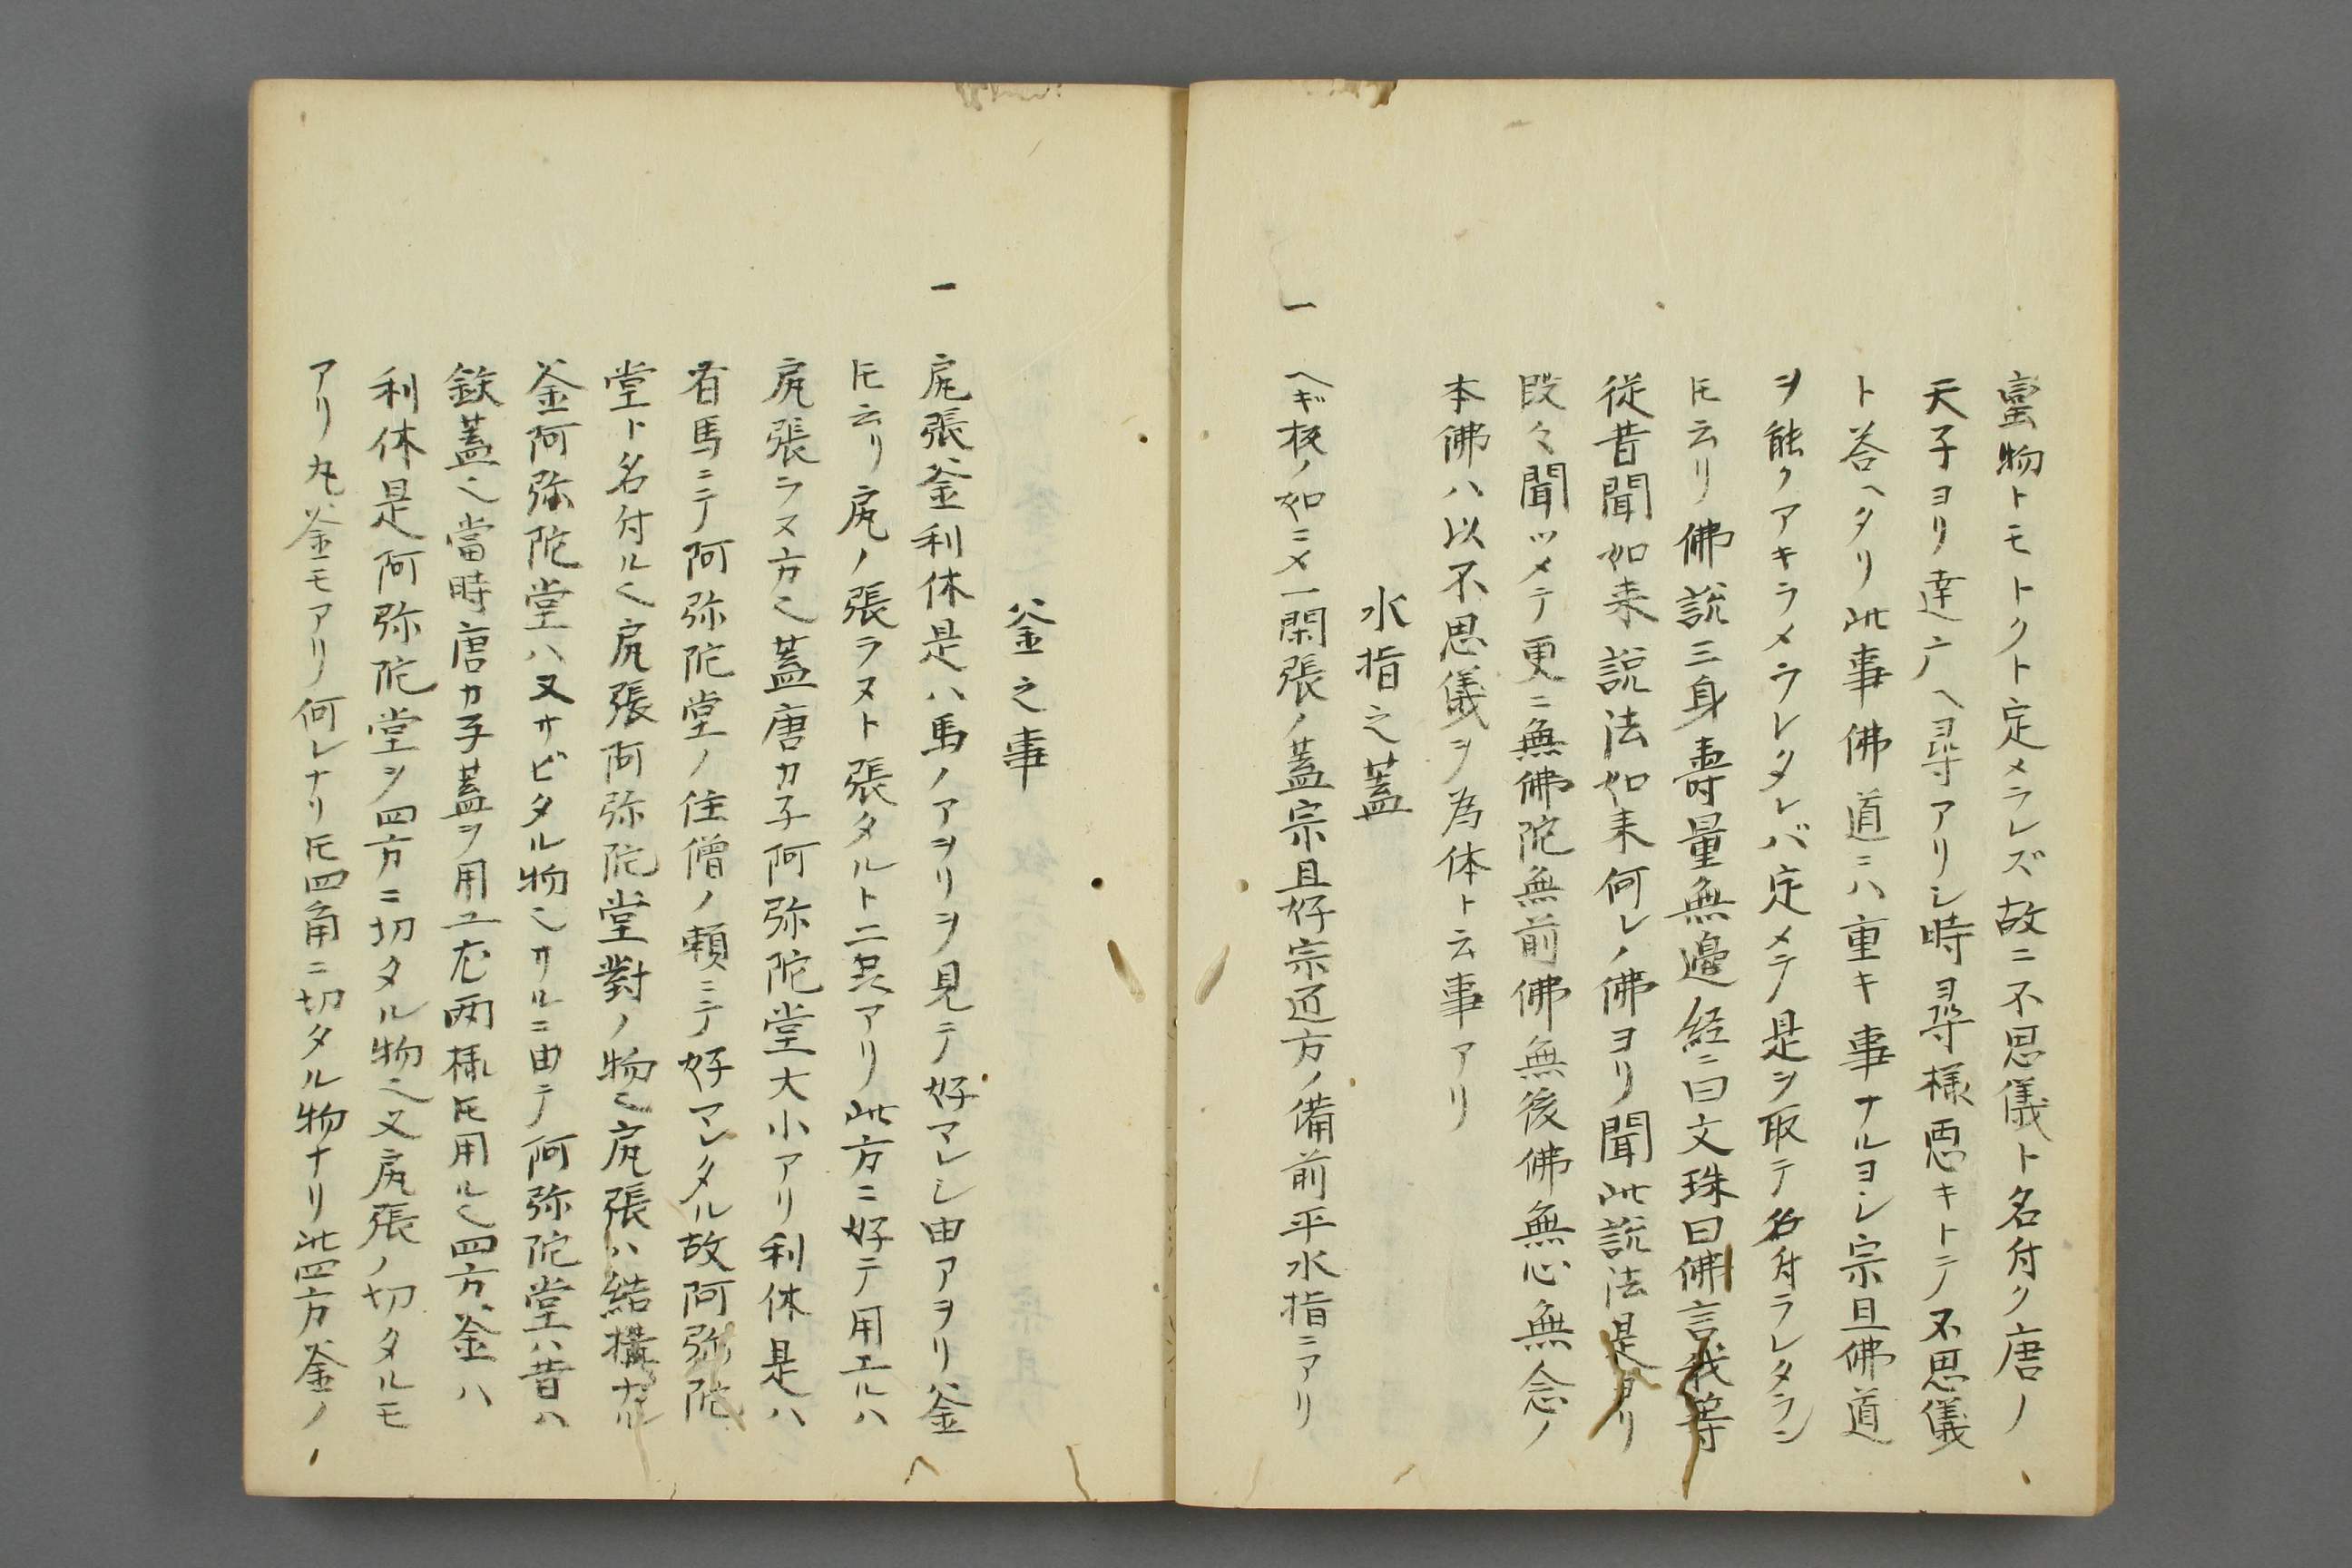 霊物トモトクト定メラレズ故ニ不思儀ト名付ク唐ノ
天子ヨリ達广ヘ尋アリシ時尋様悪キトテ不思儀
ト荅ヘタリ此事佛道ニハ重キ事ナルヨシ宗旦佛道
ヲ能クアキラメラレタレバ定メテ是ヲ取テ名付ラレタラン
𪜈云リ佛説三身壽量無邊経ニ曰文珠曰佛言我等
従昔聞如来説法如来何レノ佛ヨリ聞此説法是ヨリ
段々聞ツメテ更ニ無佛陀無前佛無後佛無心無念ノ
本佛ハ以不思儀ヲ為体ト云事アリ
水指之蓋
一 ヘギ板ノ如ニメ一閑張ノ蓋宗旦好宗近方ノ備前平水指ニアリ
釜之事
一 尻張釜利休是ハ馬ノアヲリヲ見テ好マレシ由アヲリ釜
𪜈云リ尻ノ張ラヌト張タルト二品アリ此方ニ好テ用エルハ
尻張ラヌ方〻蓋唐カ子阿弥陀堂大小アリ利休是ハ
有馬ニテ阿弥陀堂ノ住僧ノ頼ニテ好マレタル故阿弥陀
堂ト名付ル〻尻張阿弥陀堂對ノ物〻尻張ハ結搆ナル
釜阿弥陀堂ハ又サビタル物〻サルニ由テ阿弥陀堂ハ昔ハ
鉄蓋〻當時唐カ子蓋ヲ用ユ尤両様𪜈用ル〻四方釜ハ
利休是阿弥陀堂ヲ四方ニ切タル物〻又尻張ノ切タルモ
アリ丸釜モアリ何レナリ𪜈四角ニ切タル物ナリ此四方釜ノ